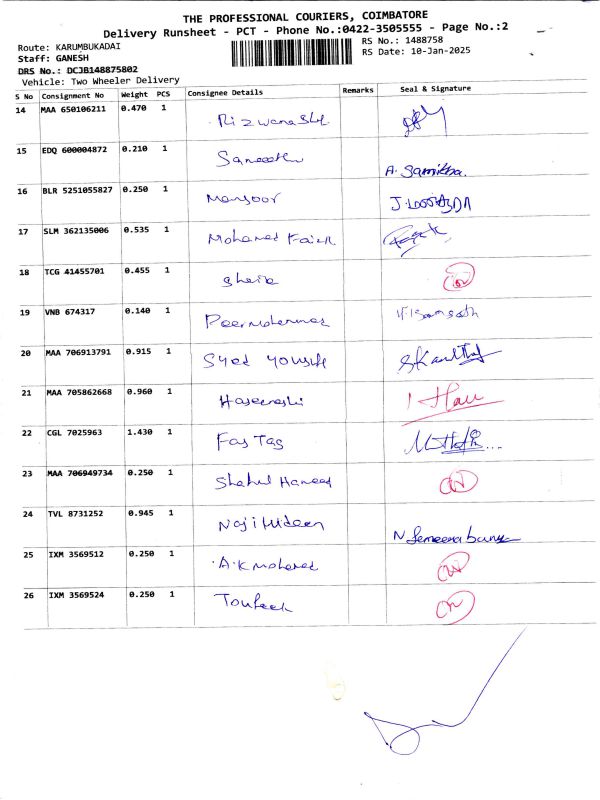 THE PROFESSIONAL COURIERS, COIMBATORE
Delivery Runsheet - PCT - Phone No.:0422-3505555 - Page No.:2
Route: KARUMBUKADAI RS No.: 1488758
Staff: GANESH RS Date: 10-Jan-2025
DRS No.: DCJB148875802
Vehicle: Two Wheeler Delivery
S No Consignment No Weight PCS Consignee Details Remarks Seal & Signature
14 MAA 650106211 0.470 1
15 EDQ 600004872 0.210 1 A. Samikha.
16 BLR 5251055827 0.250 1 Mansoor
17 SLM 362135006 0.535 1 Mohamed Faizk
18 TCG 41455701 0.455 1 Sheik
19 VNB 674317 0.140 1 Peermohammed
20 MAA 706913791 0.915 1 Syed Yousuf
21 MAA 705862668 0.960 1
22 CGL 7025963 1.430 1 Fas Tag
23 MAA 706949734 0.250 1 Shahul Hameed
24 TVL 8731252 0.945 1 N. Semeena banu
25 IXM 3569512 0.250 1 A.K Mohamed
26 IXM 3569524 0.250 1 Toufeek